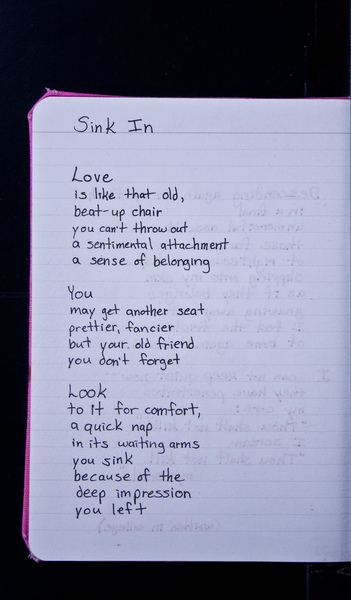 Sink In
Love
is like that old,
beat-up chair
you can't throw out
a sentimental attachment
a sense of belonging
You
may get another seat
prettier, fancier
but your old friend
you don't forget
Look
to it for comfort,
a quick nap
in its waiting arms
you sink
because of the
deep impression
you left